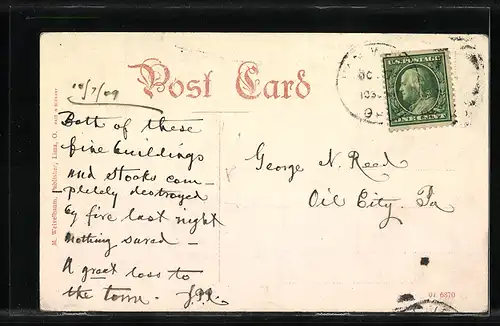 Post Card
10/7/09
Both of these
fine buildings
and stocks com-
pletely destroyed
by fire last night
nothing saved -
A great loss to
the town.
George N. Reed
Oil City, Pa
U.S. POSTAGE
ONE CENT
M. Weixelbaum, Publisher, Lima, O.
6870